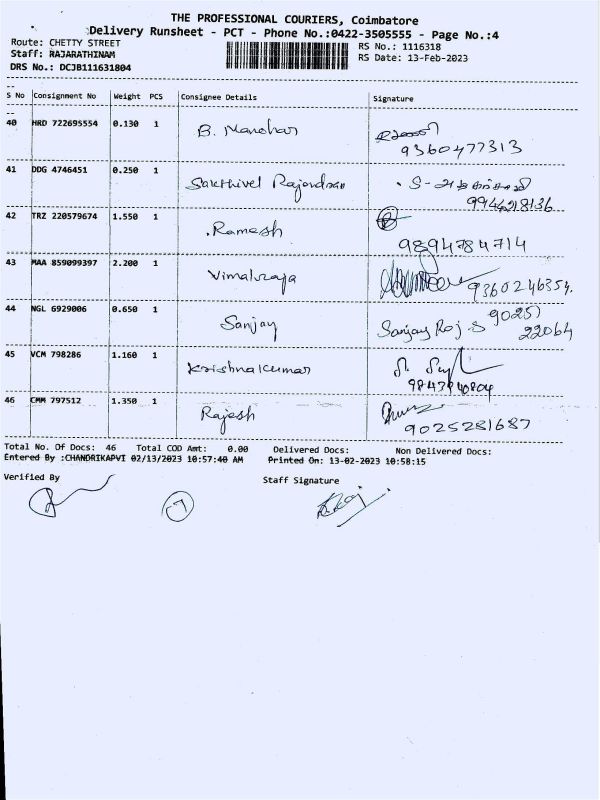 THE PROFESSIONAL COURIERS, Coimbatore
Delivery Runsheet - PCT - Phone No.:0422-3505555 - Page No.:4
Route: CHETTY STREET
RS No.: 1116318
Staff: RAJARATHINAM
RS Date: 13-Feb-2023
DRS No.: DCJB111631804
S No Consignment No Weight PCS Consignee Details Signature
40 HRD 722695554 0.130 1 B. Manohar
9360477313
41 DDG 4746451 0.250 1 Sakthivel Rajendran
9944218136
42 TRZ 220579674 1.550 1 Ramesh
9894784714
43 MAA 859099397 2.200 1 Vimalraja 9360246354.
44 NGL 6929006 0.650 1 Sanjay Sanjay Raj.S 90257
22064
45 VCM 798286 1.160 1 Krishnakumar
46 CMM 797512 1.350 1 Rajesh
9025281687
Total No. Of Docs: 46 Total COD Amt: 0.00 Delivered Docs: Non Delivered Docs:
Entered By :CHANDRIKAPVI 02/13/2023 10:57:40 AM Printed On: 13-02-2023 10:58:15
Verified By Staff Signature
7